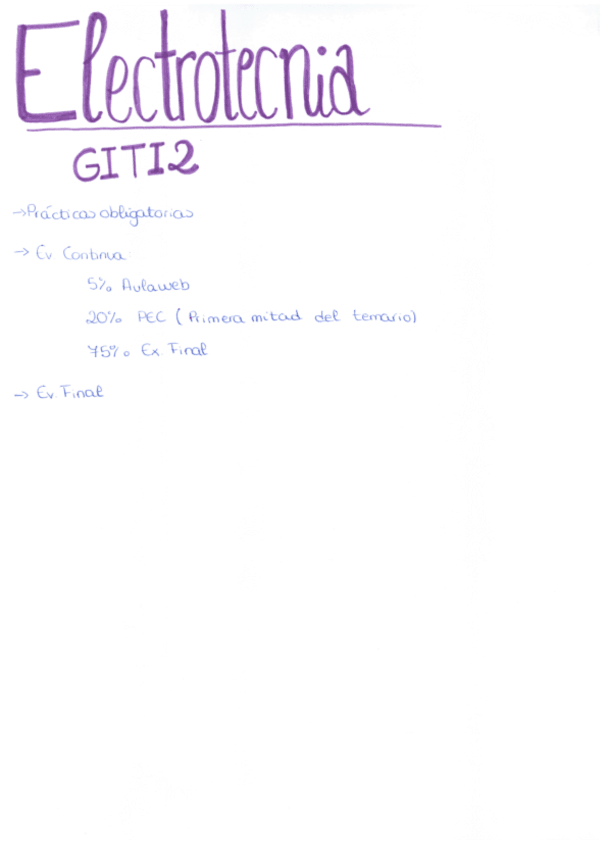 Electrotecnia
GITI2
→Prácticas obligatorias
→ Ev Continua:
5% Aulaweb
20% PEC (Primera mitad del temario)
75% Ex. Final
→ Ev. Final